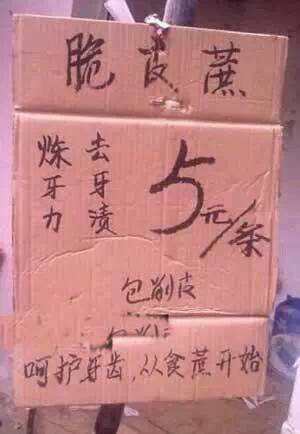 脆皮蔗
去牙渍
炼牙力
5元/条
包削皮
呵护牙齿,从食蔗开始